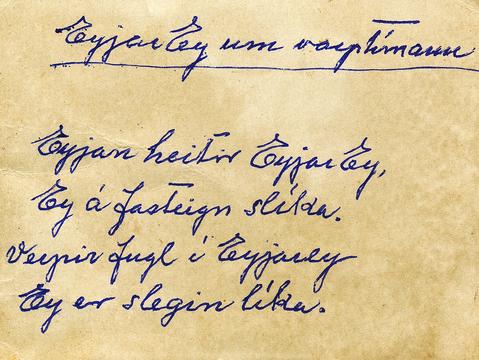 EyjarEy um varptímann
Eyjan heitir EyjarEy,
Ey á fasteign slíka.
Verpir fugl í Eyjarey
Ey er slegin líka.